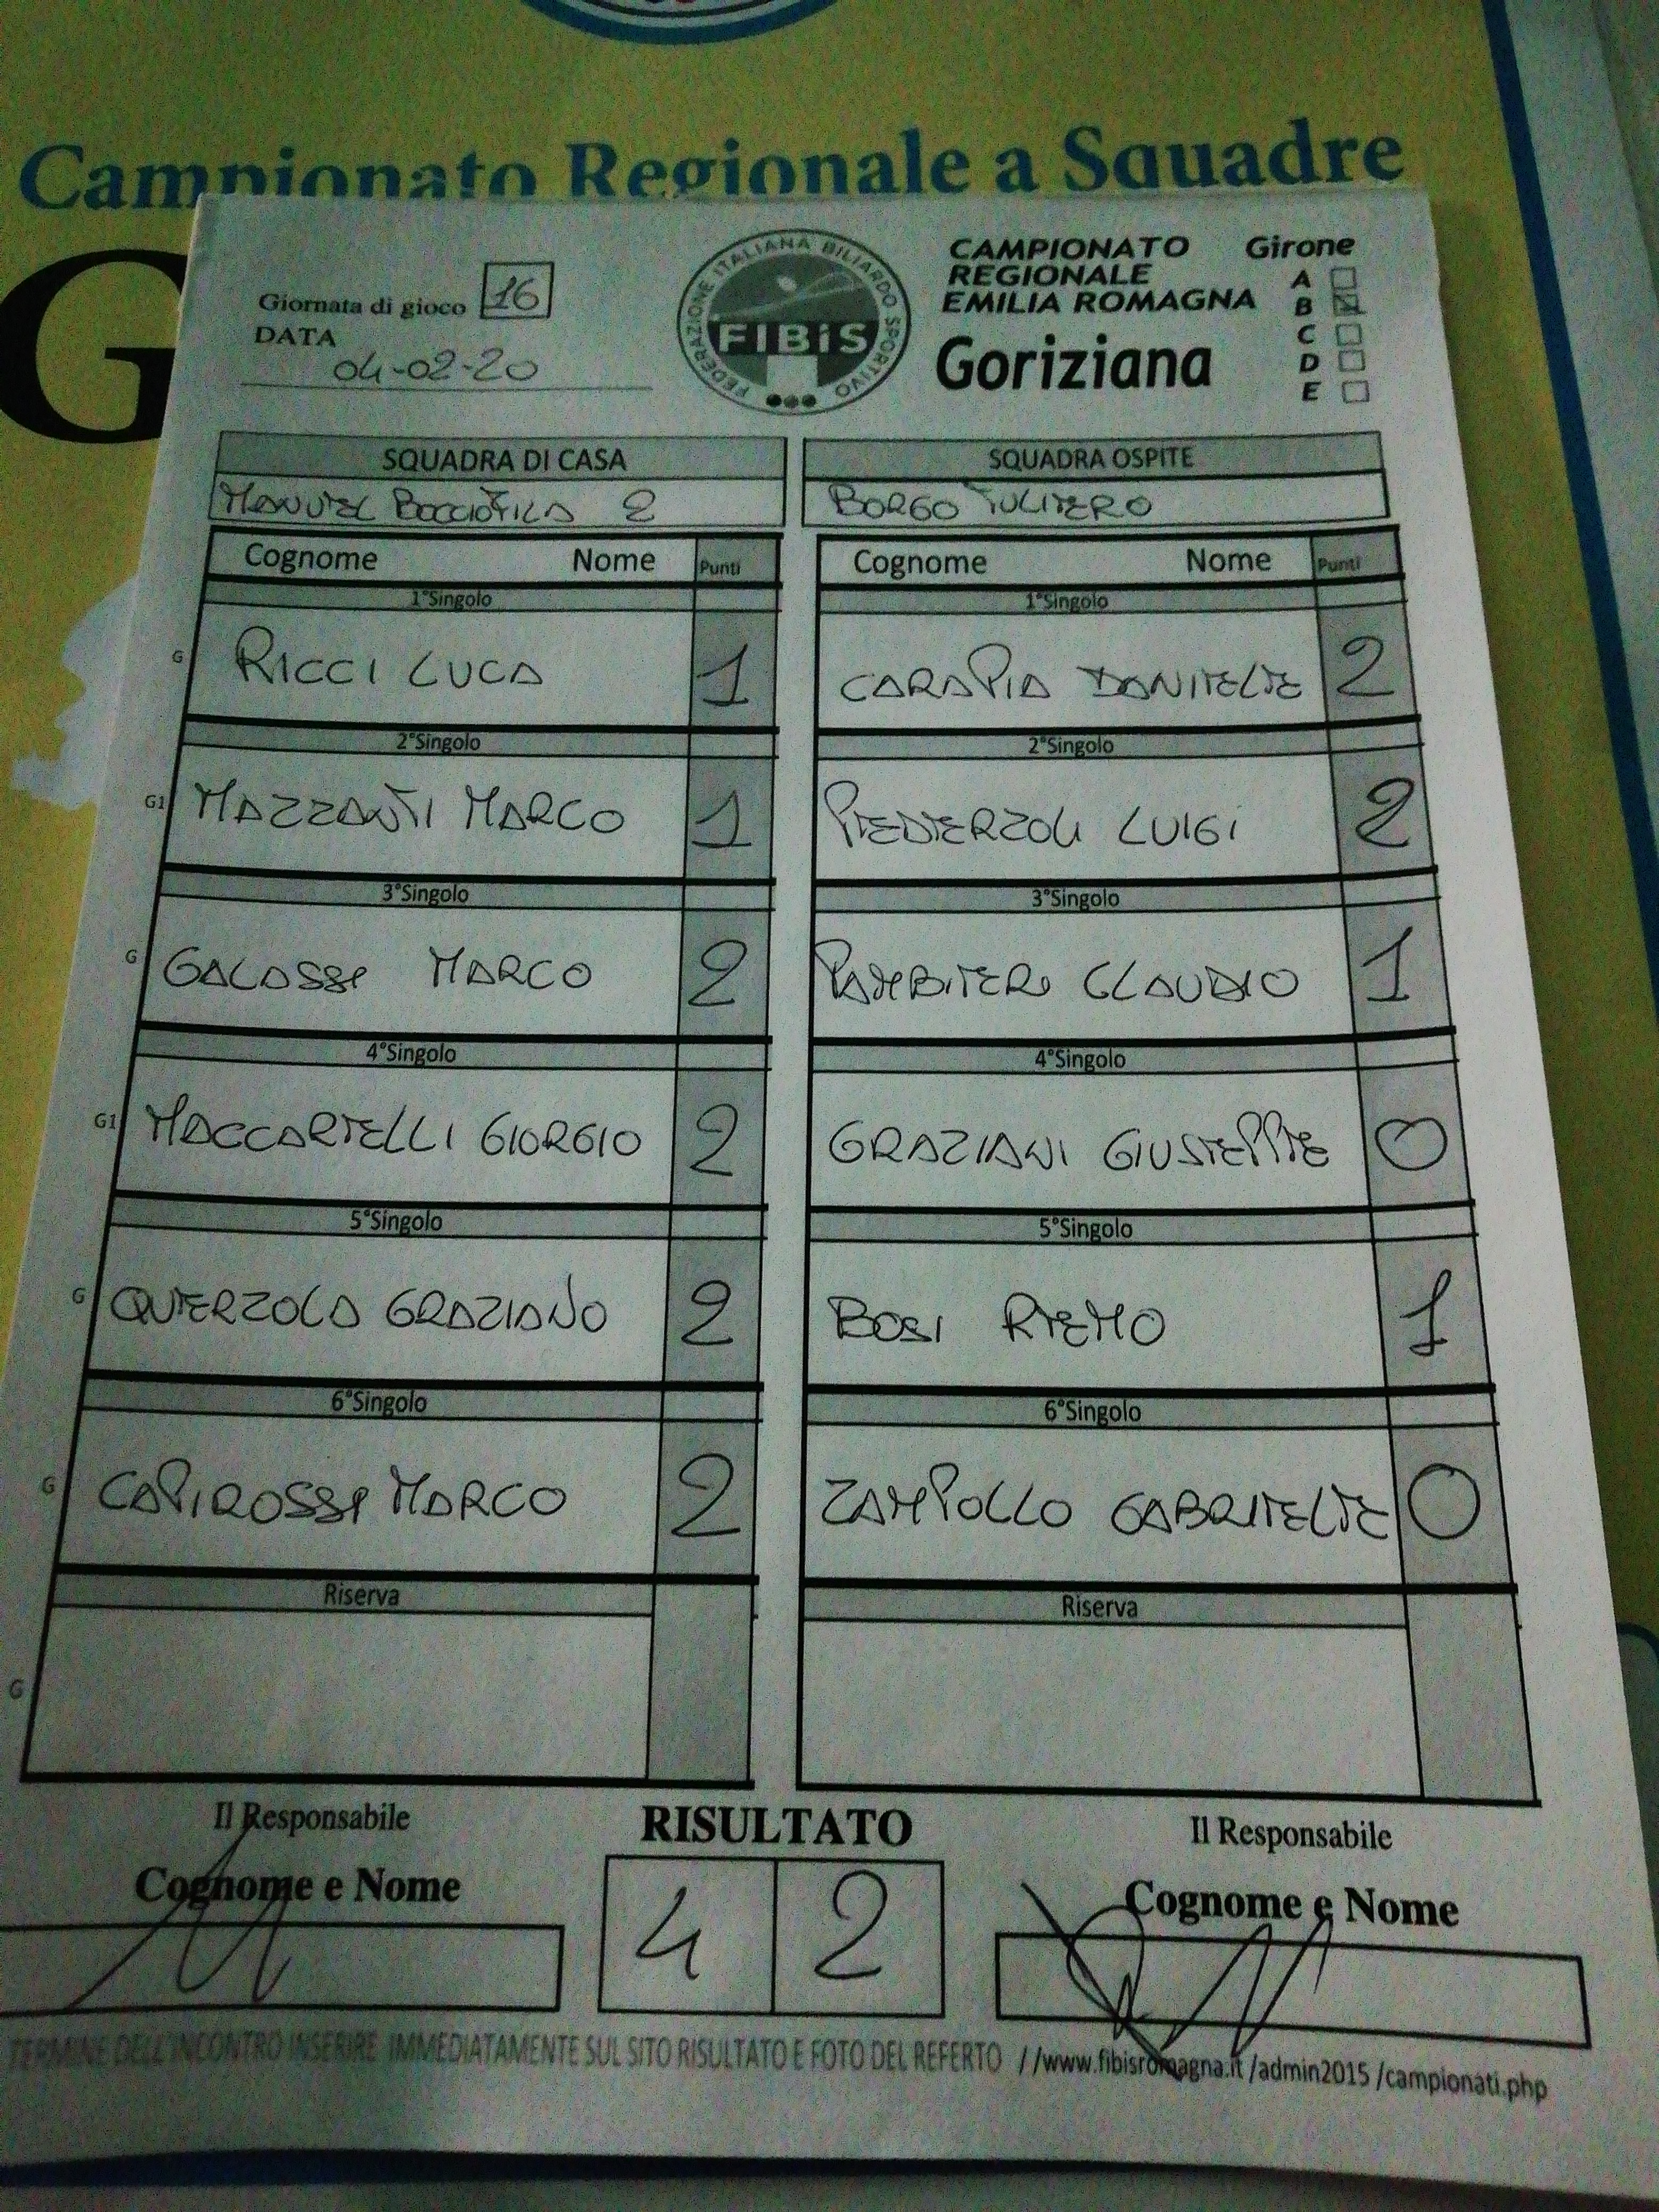 Campionato Regionale a Squadre
G
Giornata di gioco 16
DATA
04-02-20
FEDERAZIONE ITALIANA BILIARDO SPORTIVO
FIBiS
CAMPIONATO
REGIONALE
EMILIA ROMAGNA
Goriziana
Girone
A
B
C
D
E
SQUADRA DI CASA SQUADRA OSPITE
MANUEL BOCCIOFILA 2 BORGO TULIERO
Cognome Nome Punti Cognome Nome Punti
1°Singolo 1°Singolo
G RICCI LUCA 1 CARAPIA DANIELE 2
2°Singolo 2°Singolo
G1 MAZZANTI MARCO 1 PEDERZOLI LUIGI 2
3°Singolo 3°Singolo
G GALASSI MARCO 2 PAMBIERI CLAUDIO 1
4°Singolo 4°Singolo
G1 MACCARELLI GIORGIO 2 GRAZIANI GIUSEPPE 0
5°Singolo 5°Singolo
G QUERZOLA GRAZIANO 2 BOSI REMO 1
6°Singolo 6°Singolo
G CAPIROSSI MARCO 2 ZAMPOLLO GABRIELE 0
Riserva Riserva
G
Il Responsabile RISULTATO Il Responsabile
Cognome e Nome 4 2 Cognome e Nome
TERMINE DELL'INCONTRO INSERIRE IMMEDIATAMENTE SUL SITO RISULTATO E FOTO DEL REFERTO //www.fibisromagna.it/admin2015/campionati.php